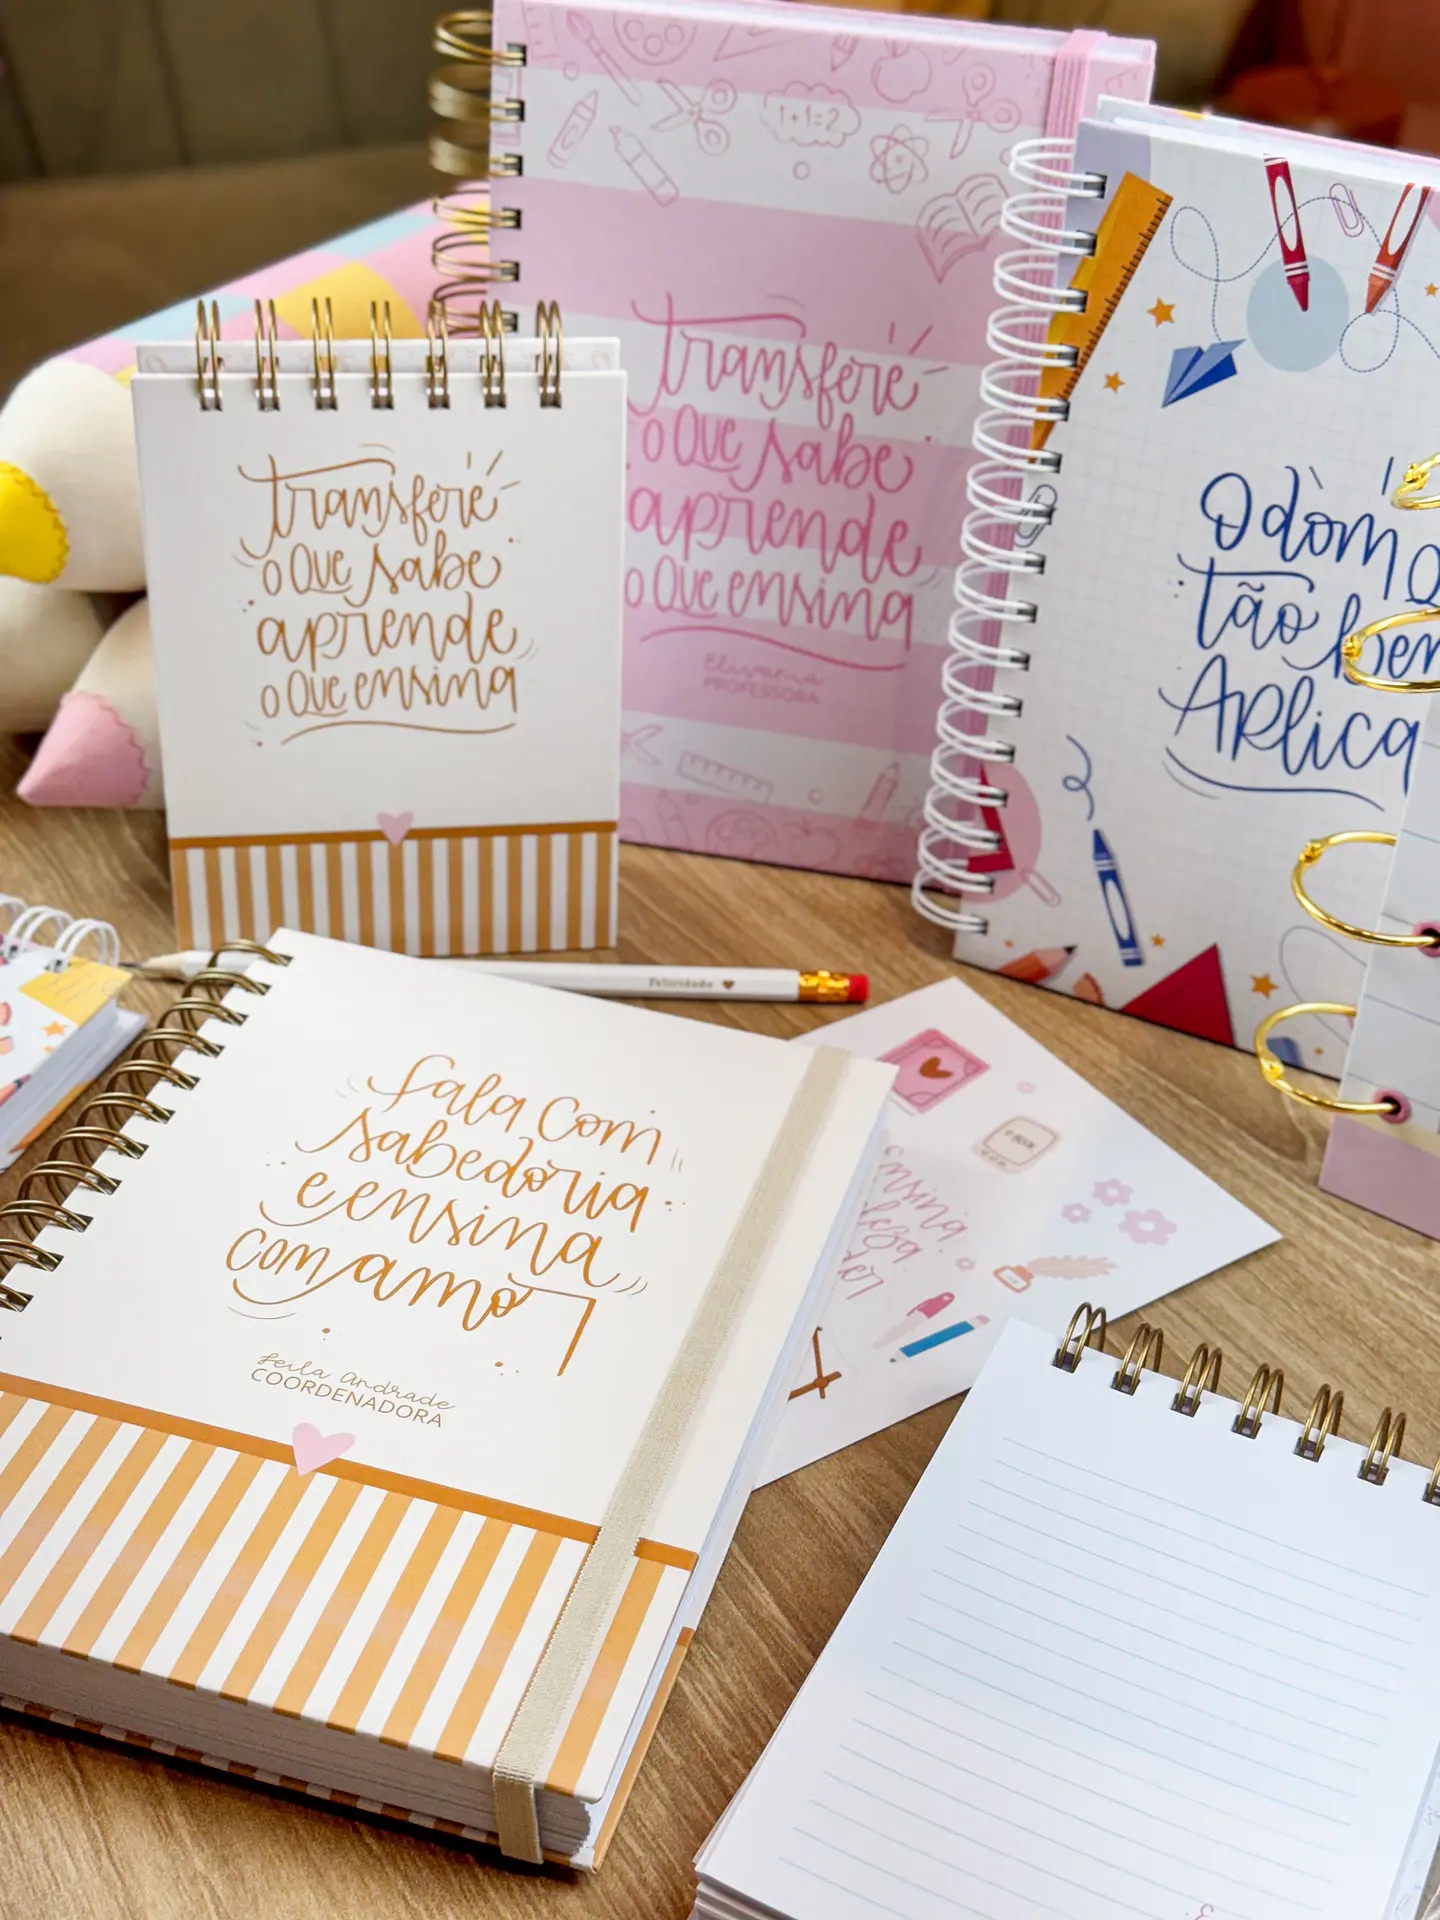 1+1=2
transfere
o que sabe
aprende
o que ensina
Elivania
PROFESSORA
transfere
o que sabe
aprende
o que ensina
O dom
tão bem
Aplica
Felicidade
fala com
sabedoria
e ensina
com amor
Leila Andrade
COORDENADORA
ensina